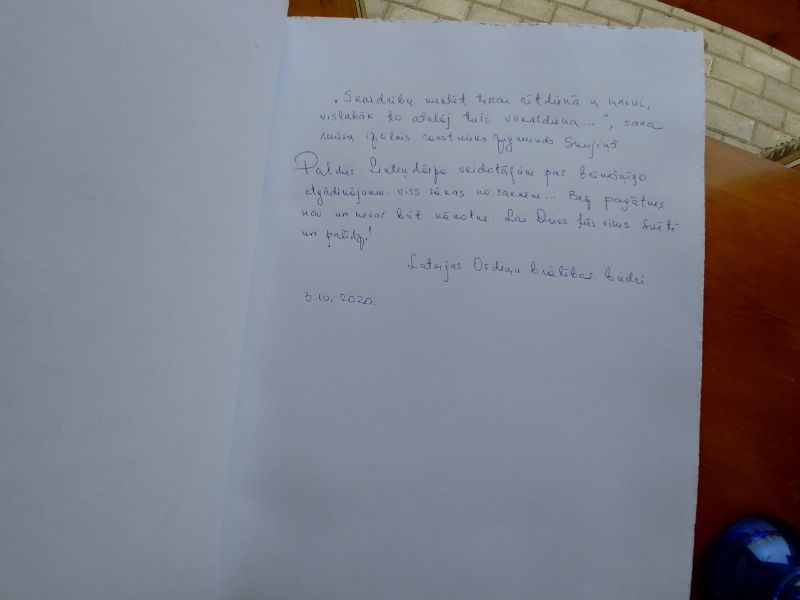 „Skaidrību meklēt tikai rītdienā ir naivi,
vislabāk to atklāj tieši vakardiena...", saka
mūsu izcilais rakstnieks Zigmunds Skujiņš.
Paldies Liepu dārza veidotājiem par brīnišķīgo
atgādinājumu - viss sākas no saknēm... Bez pagātnes
nav un nevar būt nākotne. Lai Dievs Jūs visus svētī
un palīdz!
Latvijas Ordeņu brālības biedri.
3.10.2020.